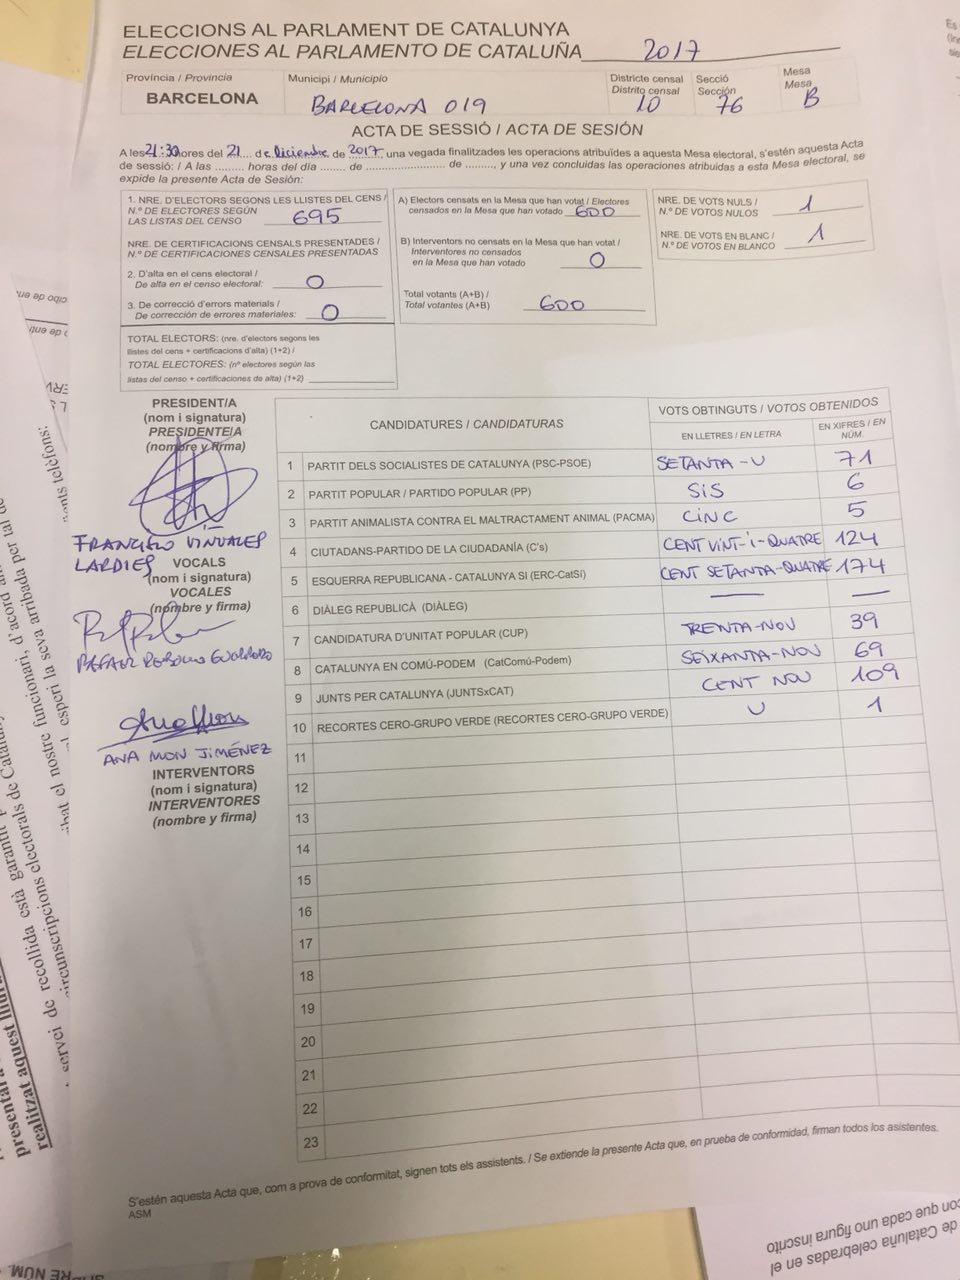 ELECCIONS AL PARLAMENT DE CATALUNYA
ELECCIONES AL PARLAMENTO DE CATALUÑA 2017
Província / Provincia
BARCELONA
Municipi / Municipio
BARCELONA 019
Districte censal
Distrito censal
10
Secció
Sección
76
Mesa
Mesa
B
ACTA DE SESSIÓ / ACTA DE SESIÓN
A les 21:30 hores del 21 de Diciembre de 2017, una vegada finalitzades les operacions atribuïdes a aquesta Mesa electoral, s'estén aquesta Acta
de sessió: / A las ......... horas del día ........ de ........................ de ........., y una vez concluidas las operaciones atribuidas a esta Mesa electoral, se
expide la presente Acta de Sesión:
1. NRE. D'ELECTORS SEGONS LES LLISTES DEL CENS /
N.º DE ELECTORES SEGÚN
LAS LISTAS DEL CENSO 695
NRE. DE CERTIFICACIONS CENSALS PRESENTADES /
N.º DE CERTIFICACIONES CENSALES PRESENTADAS
2. D'alta en el cens electoral /
De alta en el censo electoral: 0
3. De correcció d'errors materials /
De corrección de errores materiales: 0
TOTAL ELECTORS: (nre. d'electors segons les
llistes del cens + certificacions d'alta) (1+2) /
TOTAL ELECTORES: (nº electores según las
listas del censo + certificaciones de alta) (1+2)
A) Electors censats en la Mesa que han votat / Electores
censados en la Mesa que han votado 600
B) Interventors no censats en la Mesa que han votat /
Interventores no censados
en la Mesa que han votado 0
Total votants (A+B) /
Total votantes (A+B) 600
NRE. DE VOTS NULS /
N.º DE VOTOS NULOS 1
NRE. DE VOTS EN BLANC /
N.º DE VOTOS EN BLANCO 1
PRESIDENT/A
(nom i signatura)
PRESIDENTE/A
(nombre y firma)
FRANCISCO VINUALES
LARDIES
VOCALS
(nom i signatura)
VOCALES
(nombre y firma)
RAFAEL
ANA MON JIMÉNEZ
INTERVENTORS
(nom i signatura)
INTERVENTORES
(nombre y firma)
CANDIDATURES / CANDIDATURAS
VOTS OBTINGUTS / VOTOS OBTENIDOS
EN LLETRES / EN LETRA
EN XIFRES / EN
NÚM.
1 PARTIT DELS SOCIALISTES DE CATALUNYA (PSC-PSOE) SETANTA-U 71
2 PARTIT POPULAR / PARTIDO POPULAR (PP) SIS 6
3 PARTIT ANIMALISTA CONTRA EL MALTRACTAMENT ANIMAL (PACMA) CINC 5
4 CIUTADANS-PARTIDO DE LA CIUDADANÍA (C's) CENT VINT-I-QUATRE 124
5 ESQUERRA REPUBLICANA - CATALUNYA SI (ERC-CatSí) CENT SETANTA-QUATRE 174
6 DIÀLEG REPUBLICÀ (DIÀLEG) — —
7 CANDIDATURA D'UNITAT POPULAR (CUP) TRENTA-NOU 39
8 CATALUNYA EN COMÚ-PODEM (CatComú-Podem) SEIXANTA-NOU 69
9 JUNTS PER CATALUNYA (JUNTSxCAT) CENT NOU 109
10 RECORTES CERO-GRUPO VERDE (RECORTES CERO-GRUPO VERDE) U 1
11
12
13
14
15
16
17
18
19
20
21
22
23
S'estén aquesta Acta que, com a prova de conformitat, signen tots els assistents. / Se extiende la presente Acta que, en prueba de conformidad, firman todos los asistentes.
ASM
realitzat aquest
servei de recollida està garantit
circumscripcions electorals de
el nostre funcionari, d'acord
esperi la seva arribada per tal de
telèfons:
de Cataluña celebradas en el
que cada uno figura inscrito